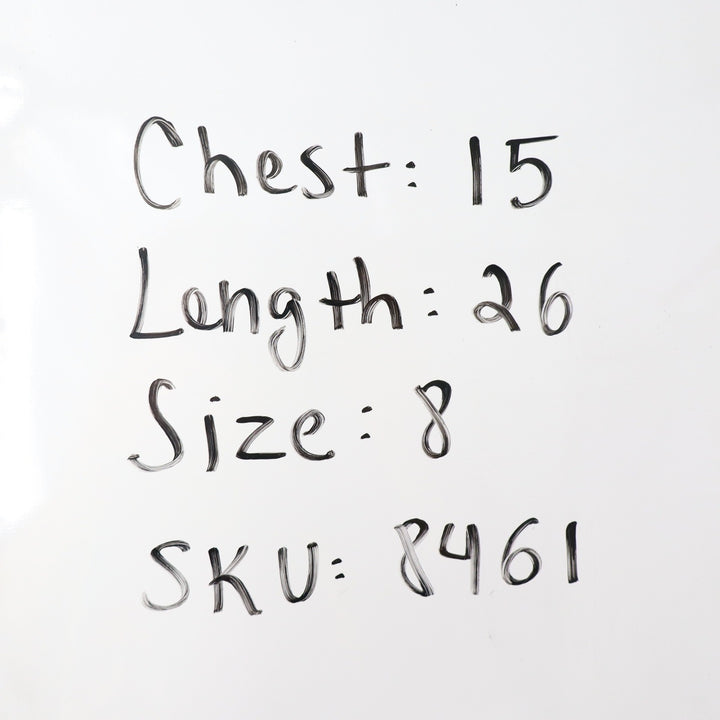 Chest: 15
Length: 26
Size: 8
SKU: 8461